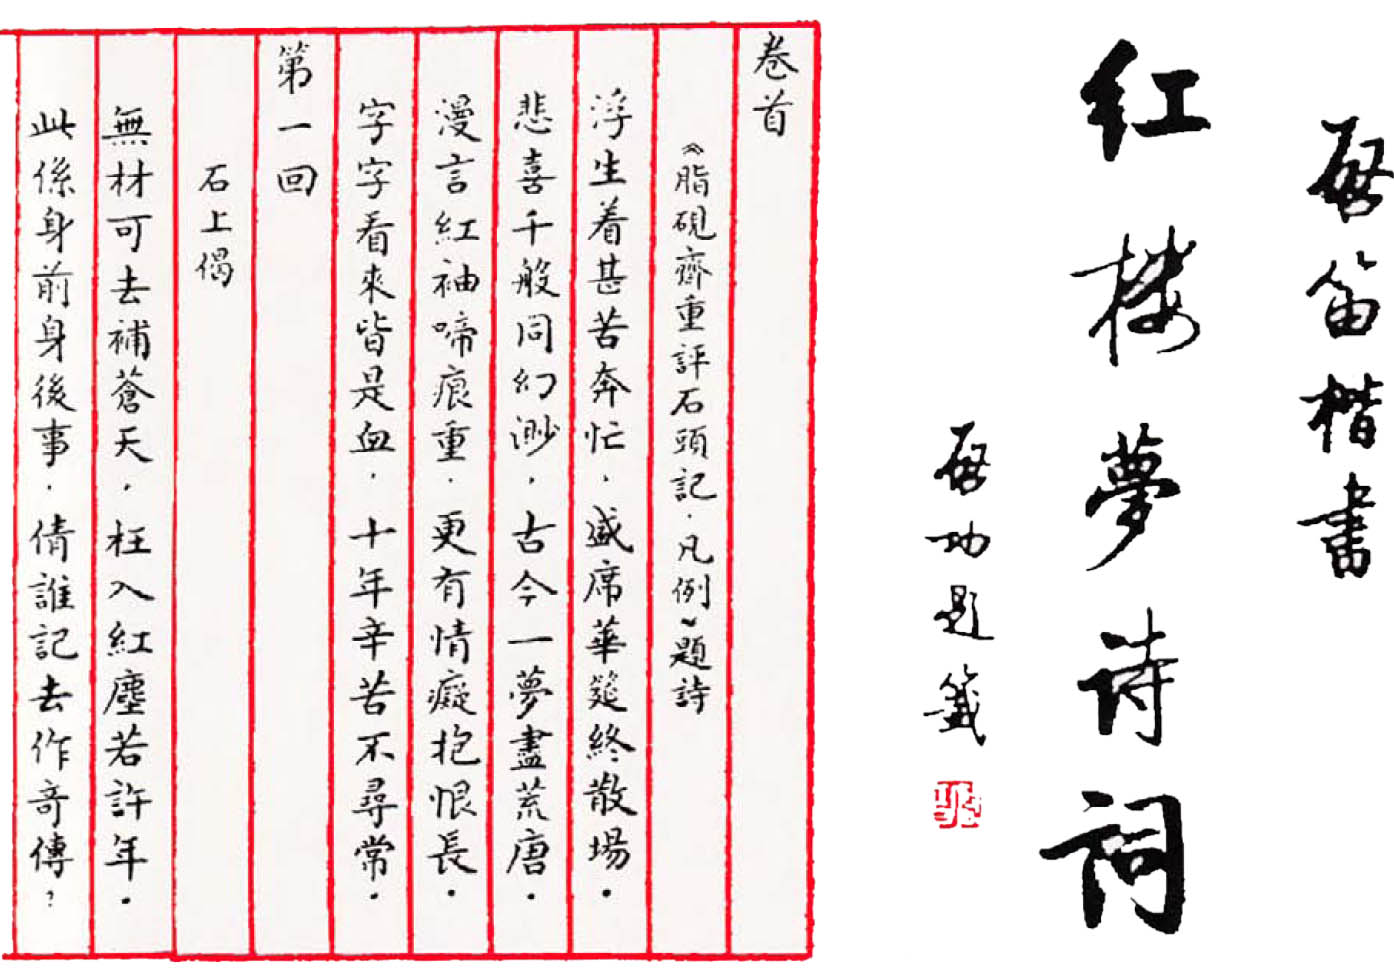 启笛楷書
红楼夢诗词
启功题籤
卷首
《脂硯齋重評石頭記·凡例》題詩
浮生着甚苦奔忙，盛席華筵終散場。
悲喜千般同幻渺，古今一夢盡荒唐。
漫言紅袖啼痕重，更有情癡抱恨長。
字字看來皆是血，十年辛苦不尋常。
第一回
石上偈
無材可去補蒼天，枉入紅塵若許年。
此係身前身後事，倩誰記去作奇傳？